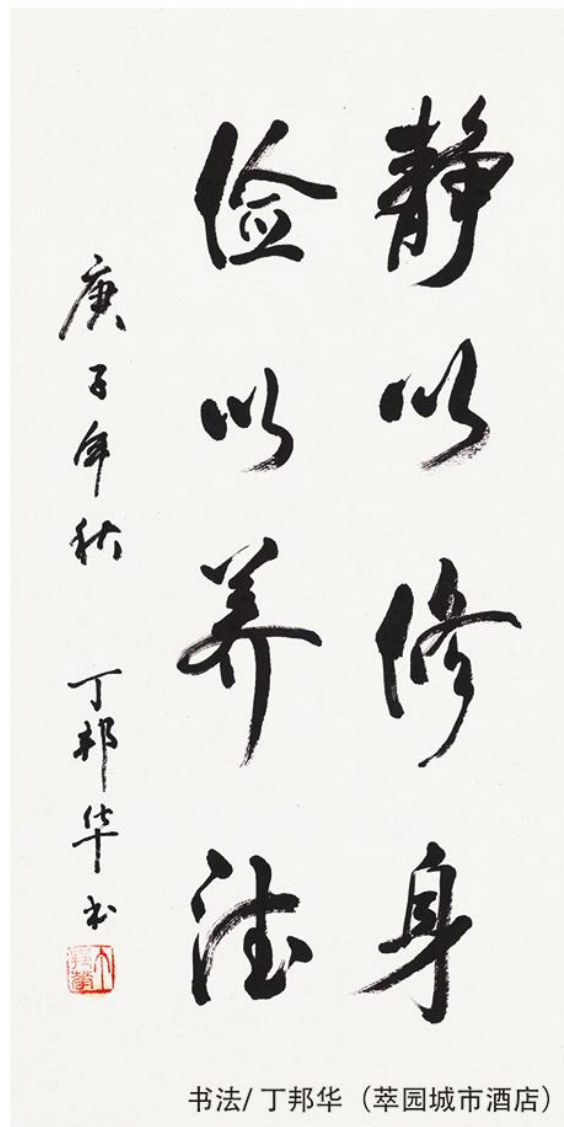 静以修身
俭以养德
庚子年秋 丁邦华书
书法/丁邦华（萃园城市酒店）